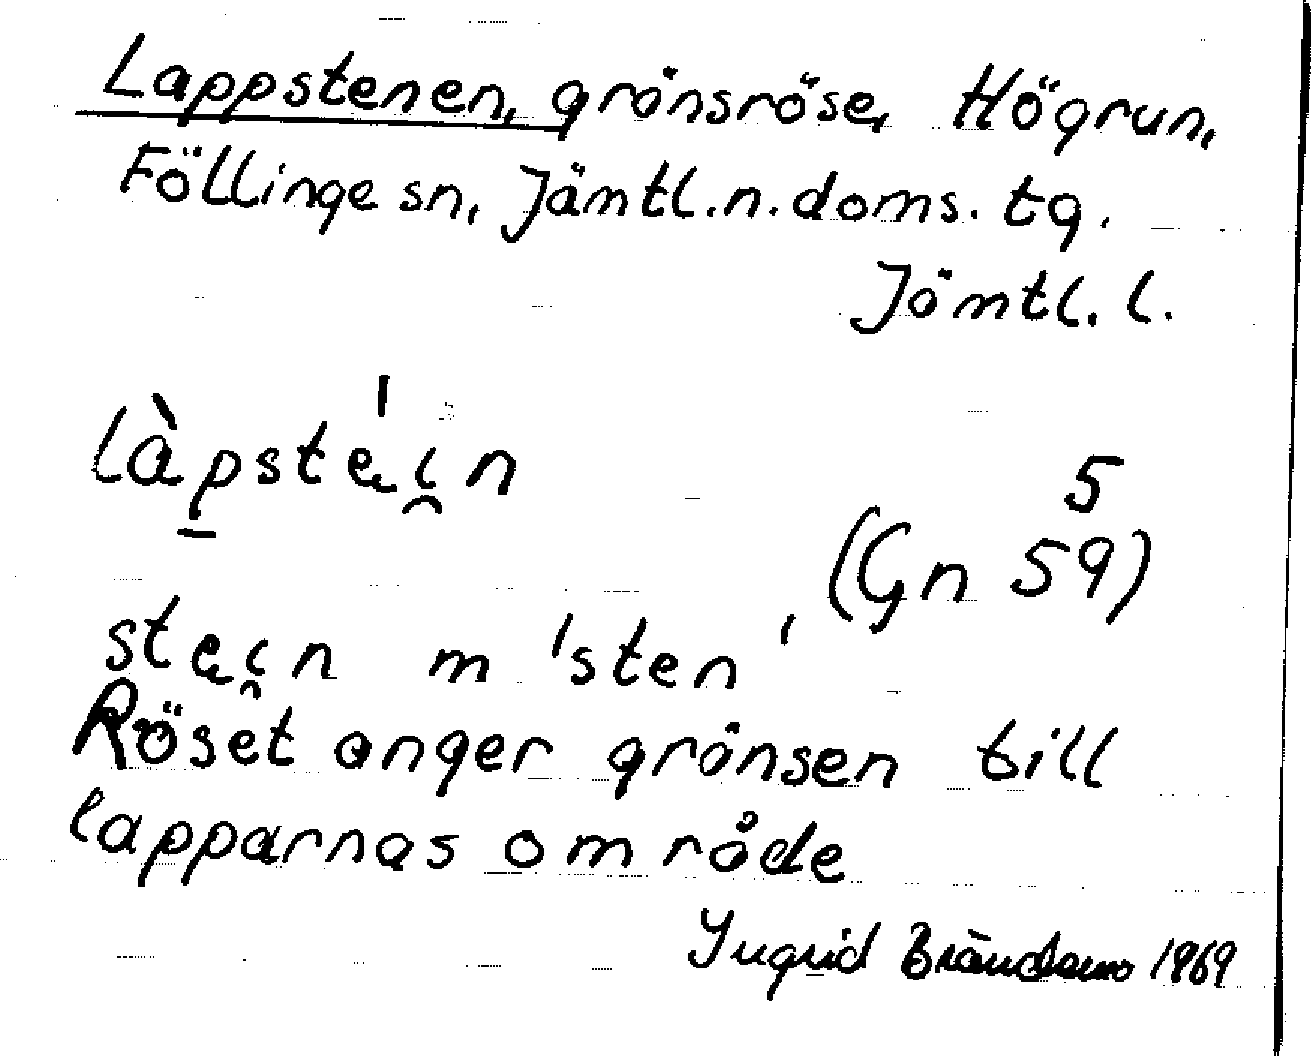 Lappstenen, gränsröse, Högrun,
Föllinge sn, Jämtl.n.doms.tg.
Jämtl. l.
là̱pste̍i̯n
5
(Gn 59)
stei̯n m 'sten'
Röset anger gränsen till
lapparnas område
Ingrid Brändemo 1969